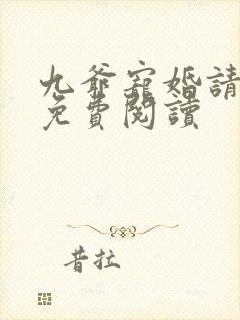 九爺寵婚請
免費閱讀
昔拉